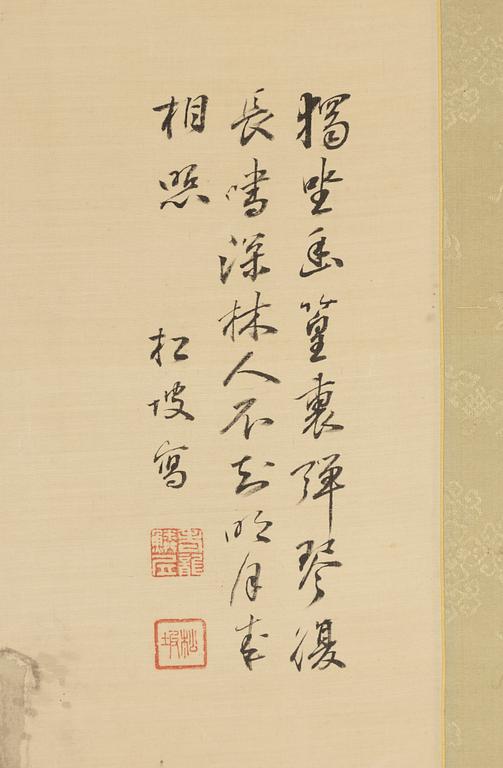 獨坐幽篁裏弾琴復
長嘯深林人不知明月来
相照
松坡寫
松坡